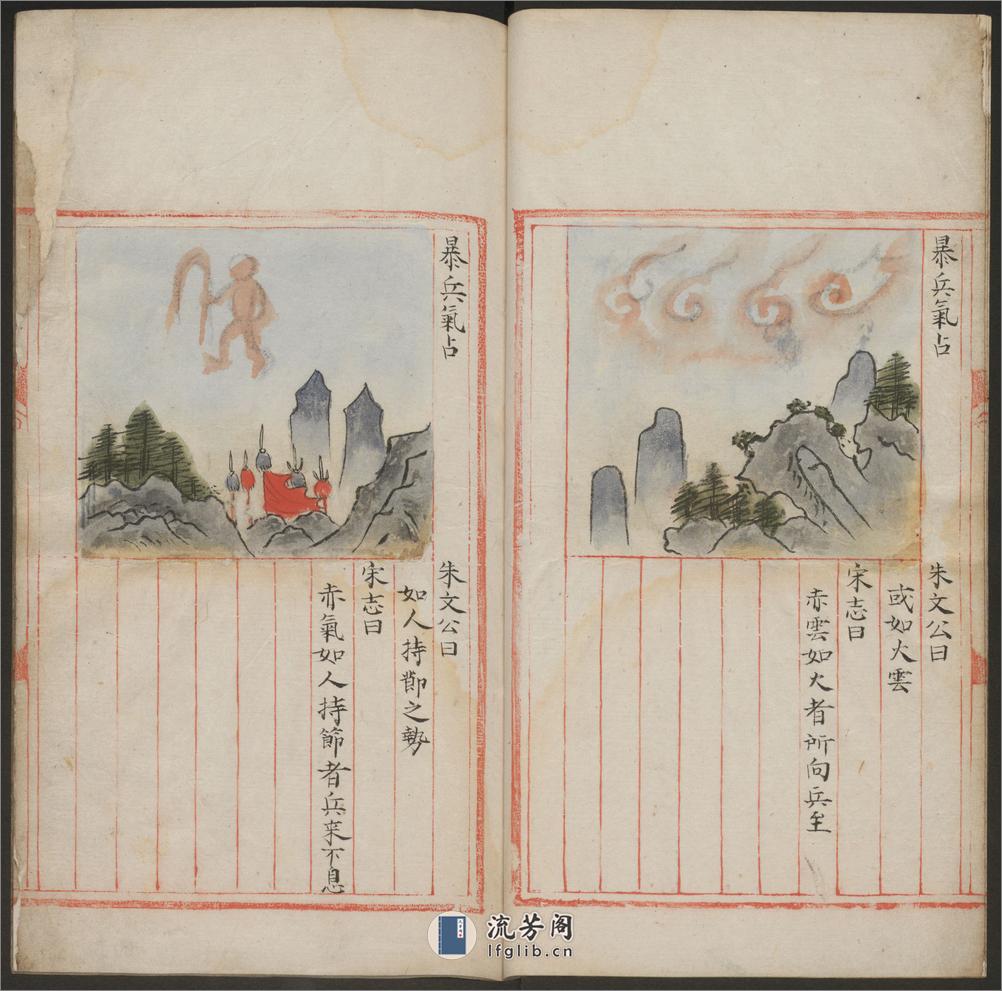 暴兵氣占
朱文公曰
或如火雲
宋志曰
赤雲如火者所向兵至
暴兵氣占
朱文公曰
如人持節之勢
宋志曰
赤氣如人持節者兵来不息
流芳阁
lfglib.cn